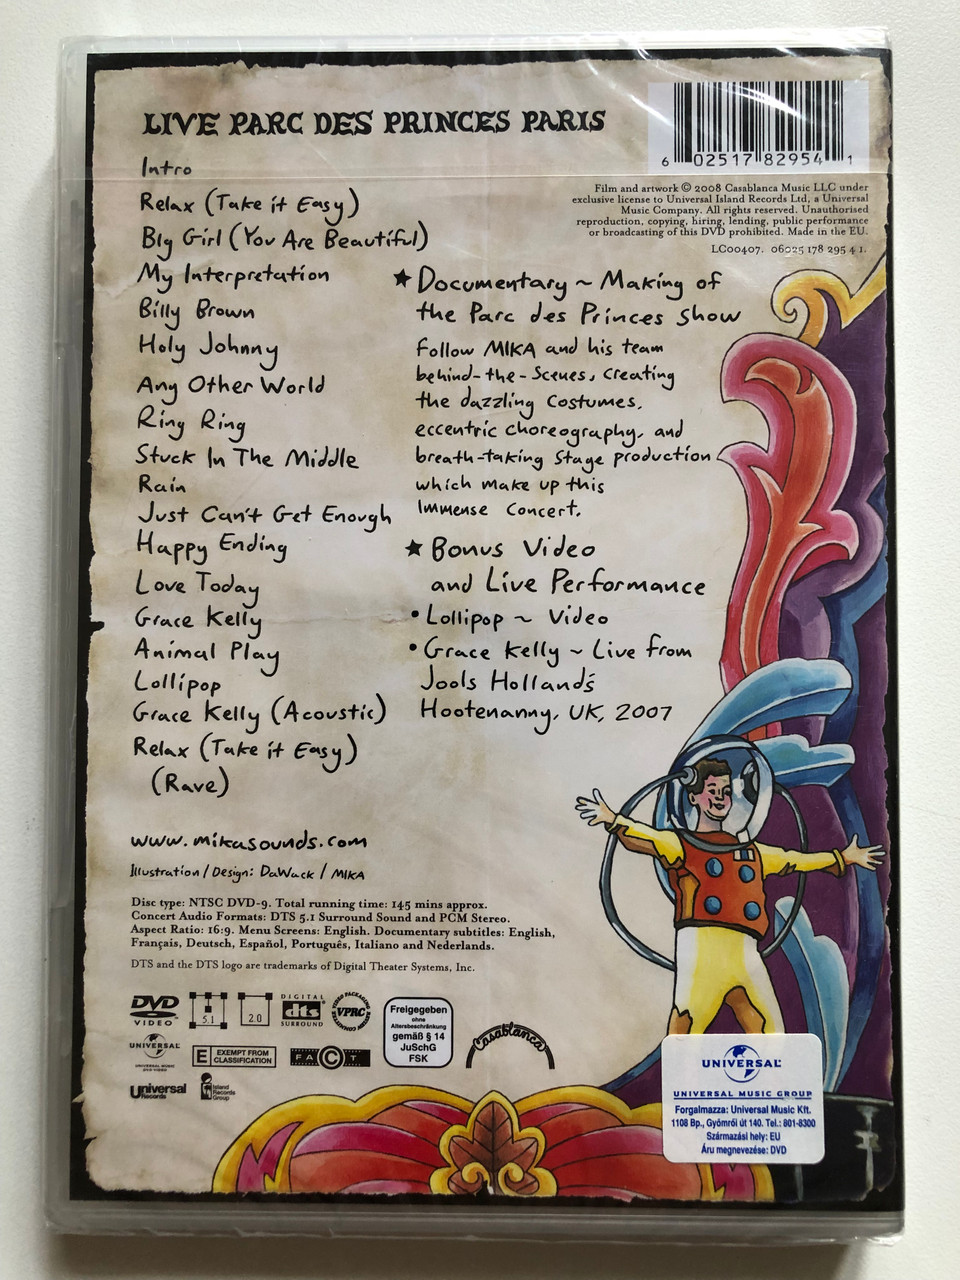 LIVE PARC DES PRINCES PARIS
Intro
Relax (Take it Easy)
Big Girl (You Are Beautiful)
My Interpretation
Billy Brown
Holy Johnny
Any Other World
Ring Ring
Stuck In The Middle
Rain
Just Can't Get Enough
Happy Ending
Love Today
Grace Kelly
Animal Play
Lollipop
Grace Kelly (Acoustic)
Relax (Take it Easy)
(Rave)
www.mikasounds.com
Illustration / Design: DaWack / MIKA
Disc type: NTSC DVD-9. Total running time: 145 mins approx.
Concert Audio Formats: DTS 5.1 Surround Sound and PCM Stereo.
Aspect Ratio: 16:9. Menu Screens: English. Documentary subtitles: English,
Français, Deutsch, Español, Português, Italiano and Nederlands.
DTS and the DTS logo are trademarks of Digital Theater Systems, Inc.
6 02517 82954 1
Film and artwork © 2008 Casablanca Music LLC under
exclusive license to Universal Island Records Ltd, a Universal
Music Company. All rights reserved. Unauthorised
reproduction, copying, hiring, lending, public performance
or broadcasting of this DVD prohibited. Made in the EU.
LC00407. 06025 178 295 4 1.
★ Documentary ~ Making of
the Parc des Princes show
Follow MIKA and his team
behind-the-scenes, creating
the dazzling costumes,
eccentric choreography, and
breath-taking stage production
which make up this
immense concert.
★ Bonus Video
and Live Performance
• Lollipop ~ Video
• Grace Kelly ~ Live from
Jools Holland's
Hootenanny, UK, 2007
DVD
VIDEO
5.1
2.0
DIGITAL
dts
SURROUND
VPRC
Freigegeben
ohne
Altersbeschränkung
gemäß § 14
JuSchG
FSK
Casablanca
UNIVERSAL
E EXEMPT FROM
CLASSIFICATION
FACT
Universal
Records
Island
Records
Group
UNIVERSAL
UNIVERSAL MUSIC GROUP
Forgalmazza: Universal Music Kft.
1108 Bp., Gyömrői út 140. Tel.: 801-8300
Származási hely: EU
Áru megnevezése: DVD